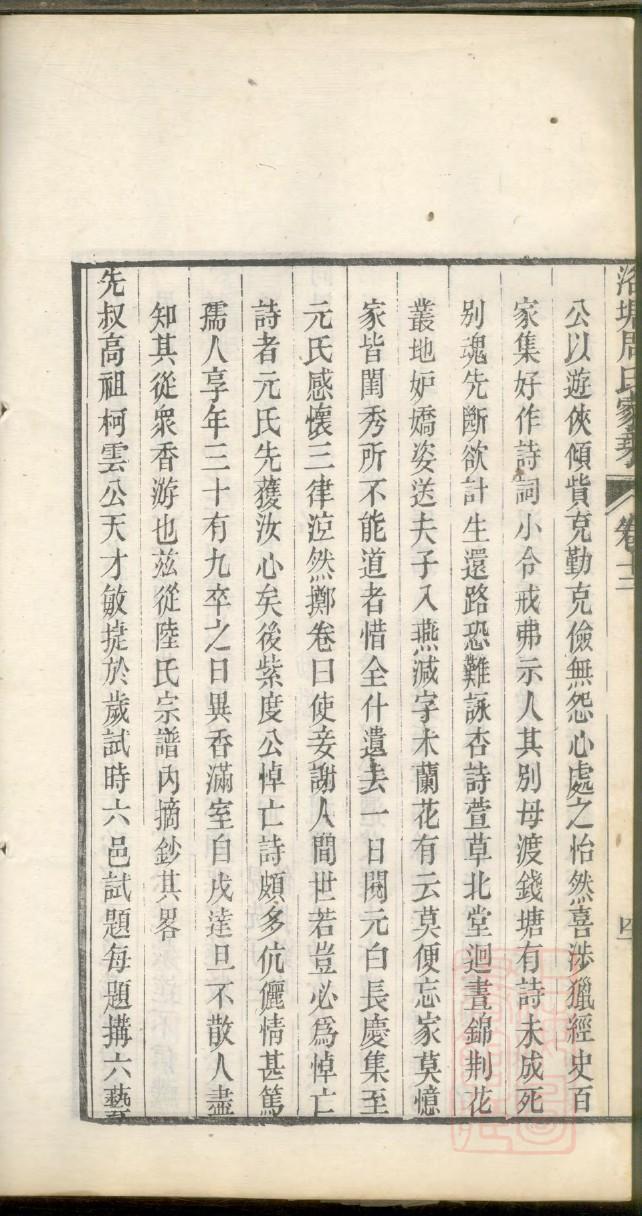 洛塘周氏家乘 卷十三 四
公以遊俠傾貲克勤克儉無怨心處之怡然喜涉獵經史百
家集好作詩詞小令戒弗示人其別母渡錢塘有詩未成死
別魂先斷欲計生還路恐難詠杏詩萱草北堂迴晝錦荆花
叢地妒嬌姿送夫子入燕減字木蘭花有云莫便忘家莫憶
家皆閨秀所不能道者惜全什遺去一日閱元白長慶集至
元氏感懷三律涖然擲卷曰使妾謝人間世若豈必爲悼亡
詩者元氏先獲汝心矣後紫度公悼亡詩頗多伉儷情甚篤
孺人享年三十有九卒之日異香滿室自戌達旦不散人盡
知其從衆香游也茲從陸氏宗譜內摘鈔其畧
先叔高祖柯雲公天才敏捷於歲試時六邑試題每題搆六藝